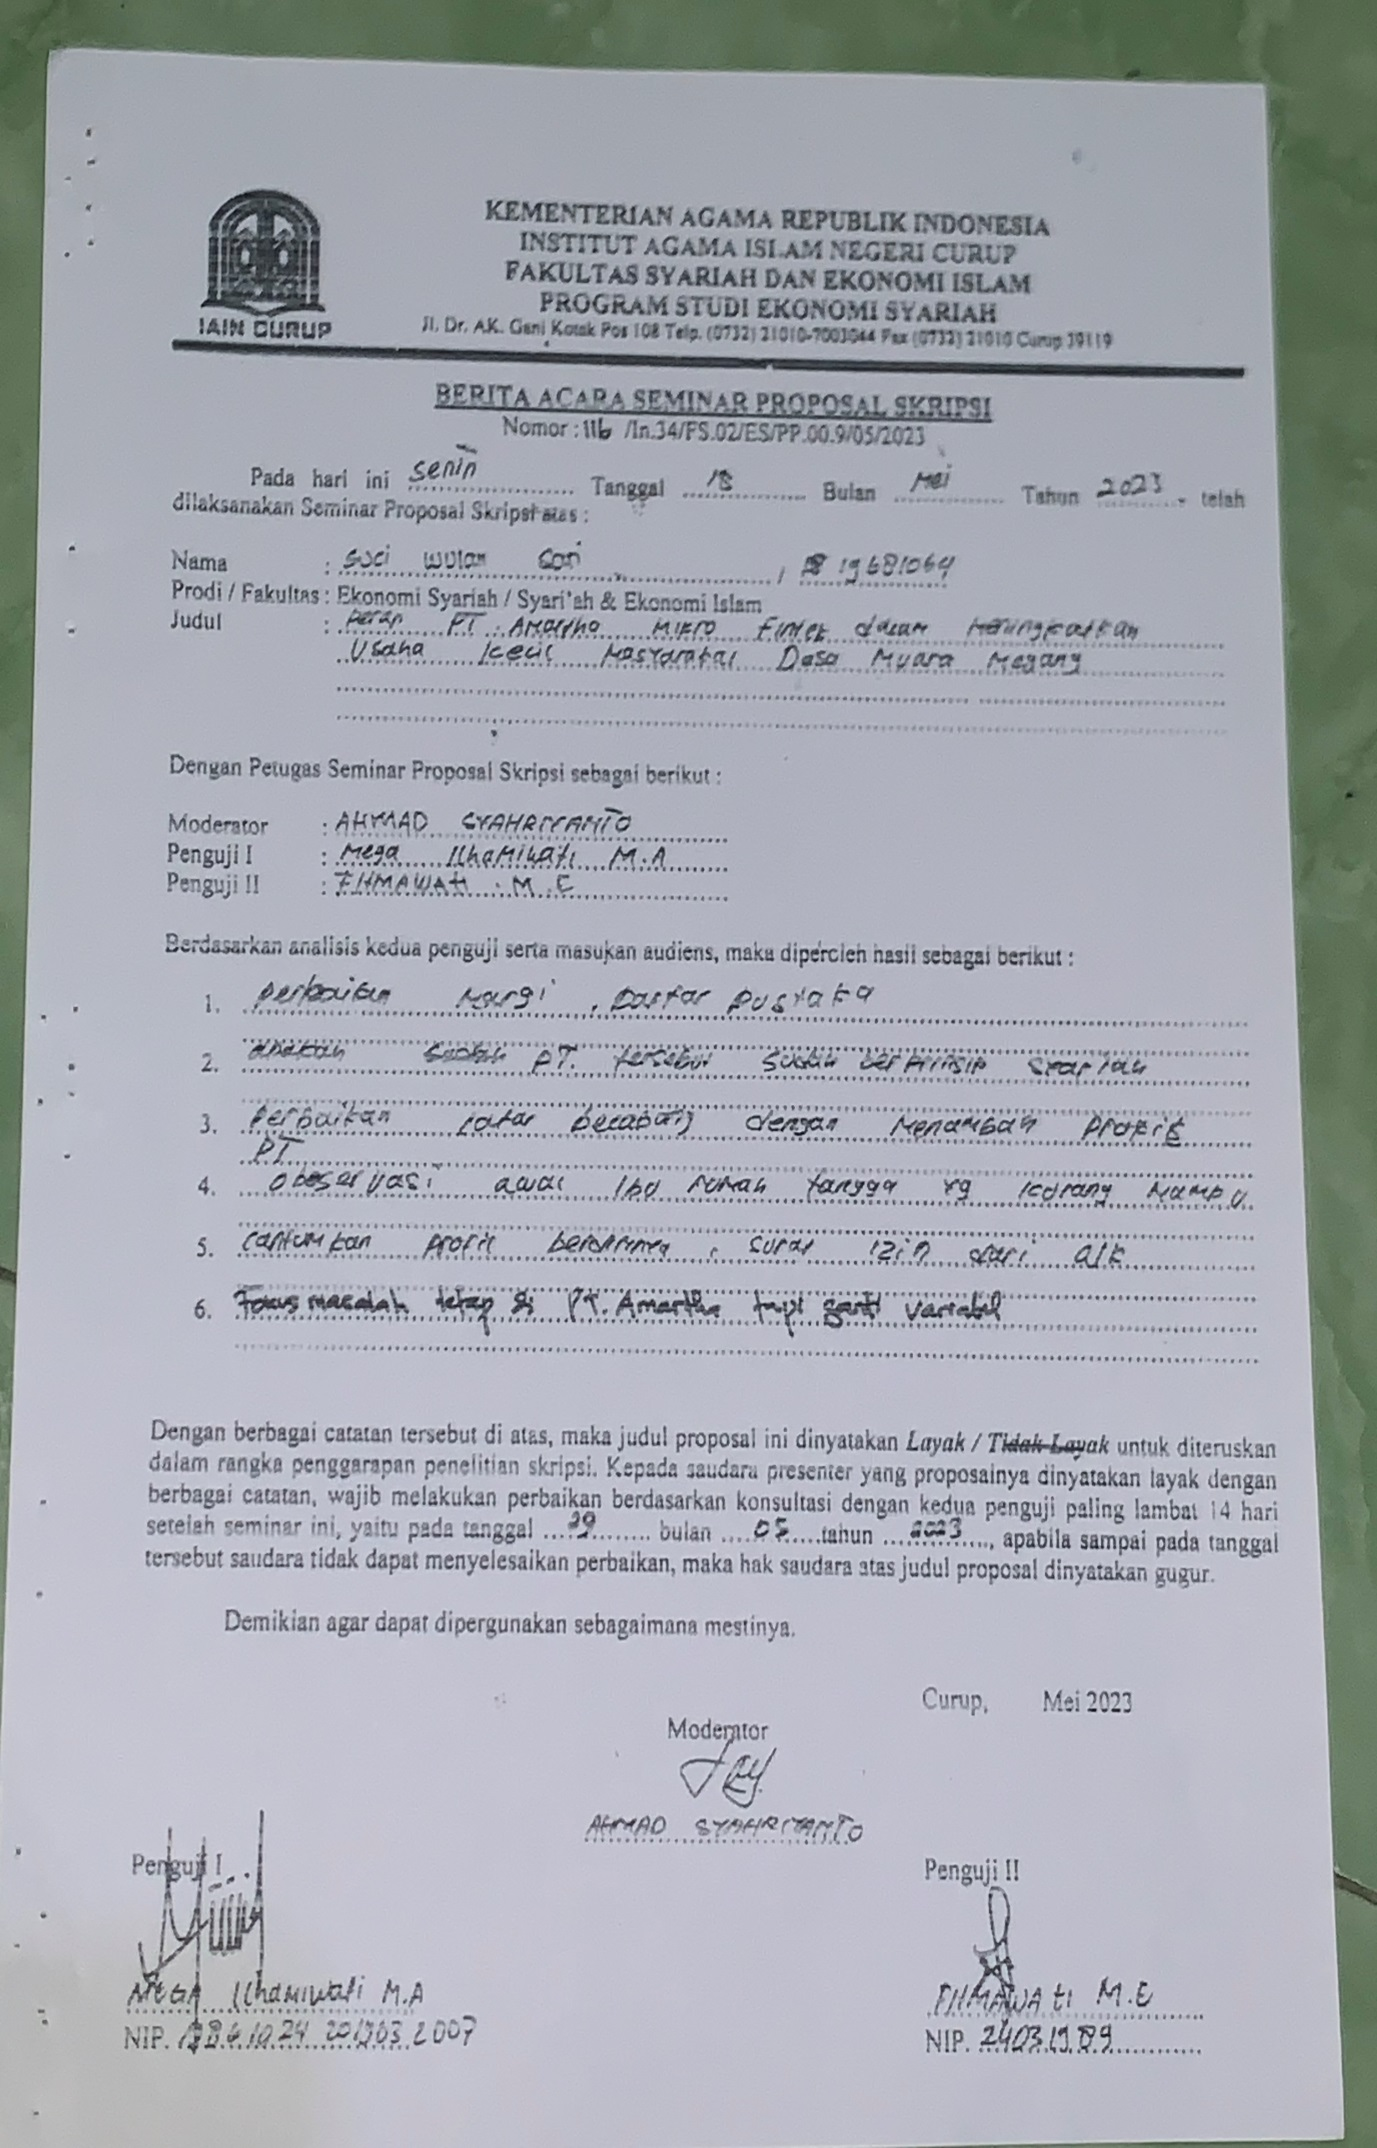 KEMENTERIAN AGAMA REPUBLIK INDONESIA
INSTITUT AGAMA ISLAM NEGERI CURUP
FAKULTAS SYARIAH DAN EKONOMI ISLAM
PROGRAM STUDI EKONOMI SYARIAH
IAIN CURUP
Jl. Dr. AK. Gani Kotak Pos 108 Telp. (0732) 21010-7003044 Fax (0732) 21010 Curup 39119
BERITA ACARA SEMINAR PROPOSAL SKRIPSI
Nomor : 116 /In.34/FS.02/ES/PP.00.9/05/2023
Pada hari ini Senin Tanggal Bulan Mei Tahun 2023. telah
dilaksanakan Seminar Proposal Skripsi atas :
Nama : Suci Wulan Sari / 19681064
Prodi / Fakultas : Ekonomi Syariah / Syari'ah & Ekonomi Islam
Judul : Peran PT. Amartha Mikro Fintek dalam Meningkatkan
Usaha Kecil Masyarakat Desa Muara Megang
Dengan Petugas Seminar Proposal Skripsi sebagai berikut :
Moderator : AHMAD SYAHRIYANTO
Penguji I : Mega Ilhamiwati M.A
Penguji II : FITMAWATI . M.E
Berdasarkan analisis kedua penguji serta masukan audiens, maka diperoleh hasil sebagai berikut :
1. Perbaikan Margi , Daftar Pustaka
2. apakah PT. tersebut sudah berprinsip syariah
3. Perbaikan latar belakang dengan Menambah Profil
PT
4. Obeservasi awal Ibu rumah tangga yg kurang Mampu
5. Cantumkan Profil berdirinya , Surat izin dari
6. Fokus masalah tetap di PT. Amartha tapi ganti variabel
Dengan berbagai catatan tersebut di atas, maka judul proposal ini dinyatakan Layak / Tidak Layak untuk diteruskan
dalam rangka penggarapan penelitian skripsi. Kepada saudara presenter yang proposalnya dinyatakan layak dengan
berbagai catatan, wajib melakukan perbaikan berdasarkan konsultasi dengan kedua penguji paling lambat 14 hari
setelah seminar ini, yaitu pada tanggal 29 bulan 05 tahun 2023, apabila sampai pada tanggal
tersebut saudara tidak dapat menyelesaikan perbaikan, maka hak saudara atas judul proposal dinyatakan gugur.
Demikian agar dapat dipergunakan sebagaimana mestinya.
Curup, Mei 2023
Moderator
AHMAD SYAHRIYANTO
Penguji I Penguji II
MEGA Ilhamiwati M.A FITMAWATI M.E
NIP. NIP.